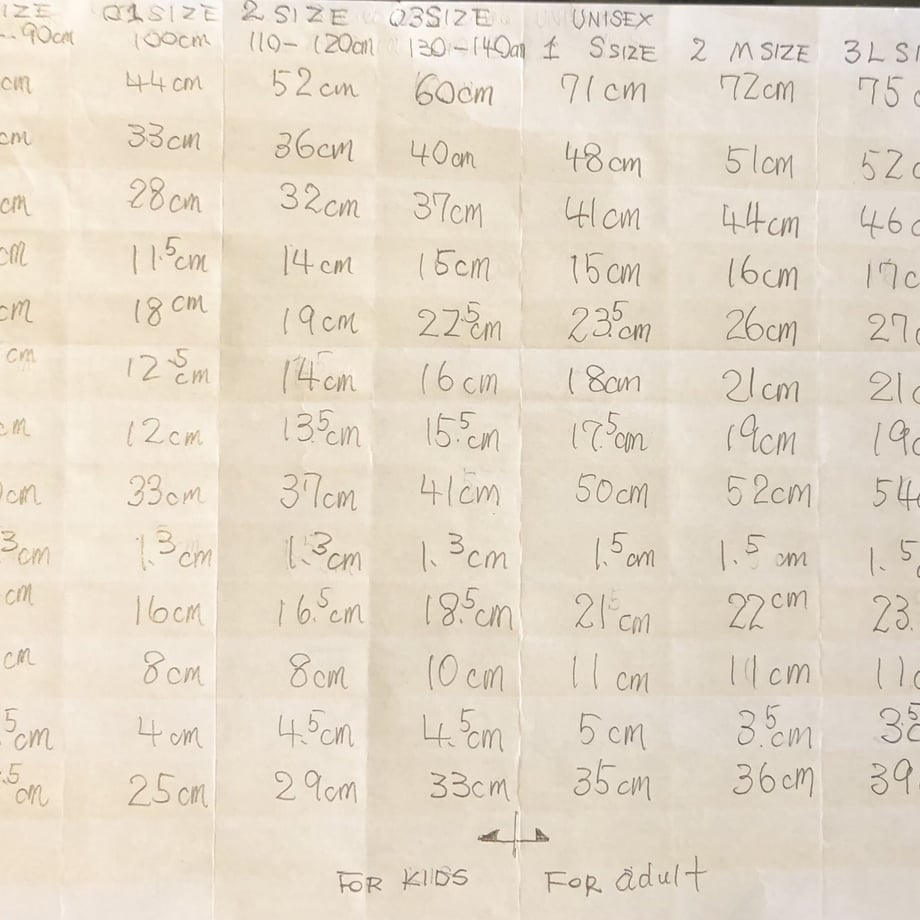 IZE 01 SIZE 2 SIZE 03 SIZE UNISEX
90cm 100cm 110-120cm 130-140cm 1 S SIZE 2 M SIZE 3 L SI
cm 44cm 52cm 60cm 71cm 72cm 75c
cm 33cm 36cm 40cm 48cm 51cm 52c
cm 28cm 32cm 37cm 41cm 44cm 46c
cm 11.5cm 14cm 15cm 15cm 16cm 17c
cm 18cm 19cm 22.5cm 23.5cm 26cm 27c
cm 12.5cm 14cm 16cm 18cm 21cm 21c
cm 12cm 13.5cm 15.5cm 17.5cm 19cm 19c
0cm 33cm 37cm 41cm 50cm 52cm 54c
3cm 1.3cm 1.3cm 1.3cm 1.5cm 1.5cm 1.5
cm 16cm 16.5cm 18.5cm 21cm 22cm 23.
cm 8cm 8cm 10cm 11cm 11cm 11c
.5cm 4cm 4.5cm 4.5cm 5cm 3.5cm 3.5c
.5cm 25cm 29cm 33cm 35cm 36cm 39
FOR KIDS FOR adult